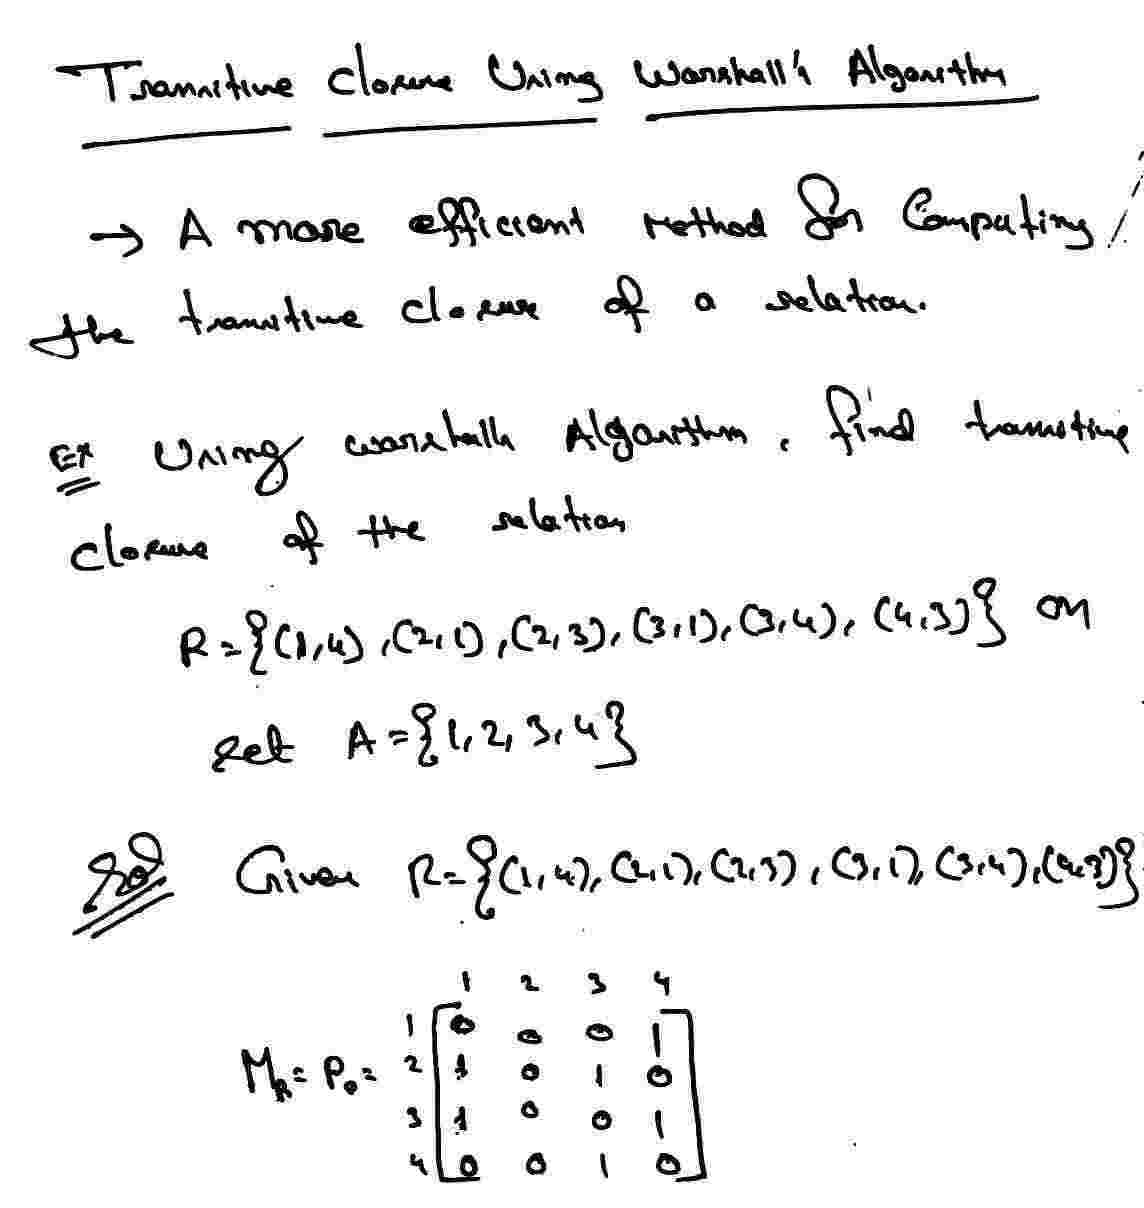 Transitive Closure Using Warshall's Algorithm
→ A more efficient Method for Computing
the transitive closure of a relation.
Ex Using warshalls Algorithm, find transitive
closure of the relation
R={(1,4),(2,1),(2,3),(3,1),(3,4),(4,3)} on
set A={1,2,3,4}
Sol Given R={(1,4),(2,1),(2,3),(3,1),(3,4),(4,3)}
1 2 3 4
1 0 0 0 1
M_R = P_0 = 2 1 0 1 0
3 1 0 0 1
4 0 0 1 0